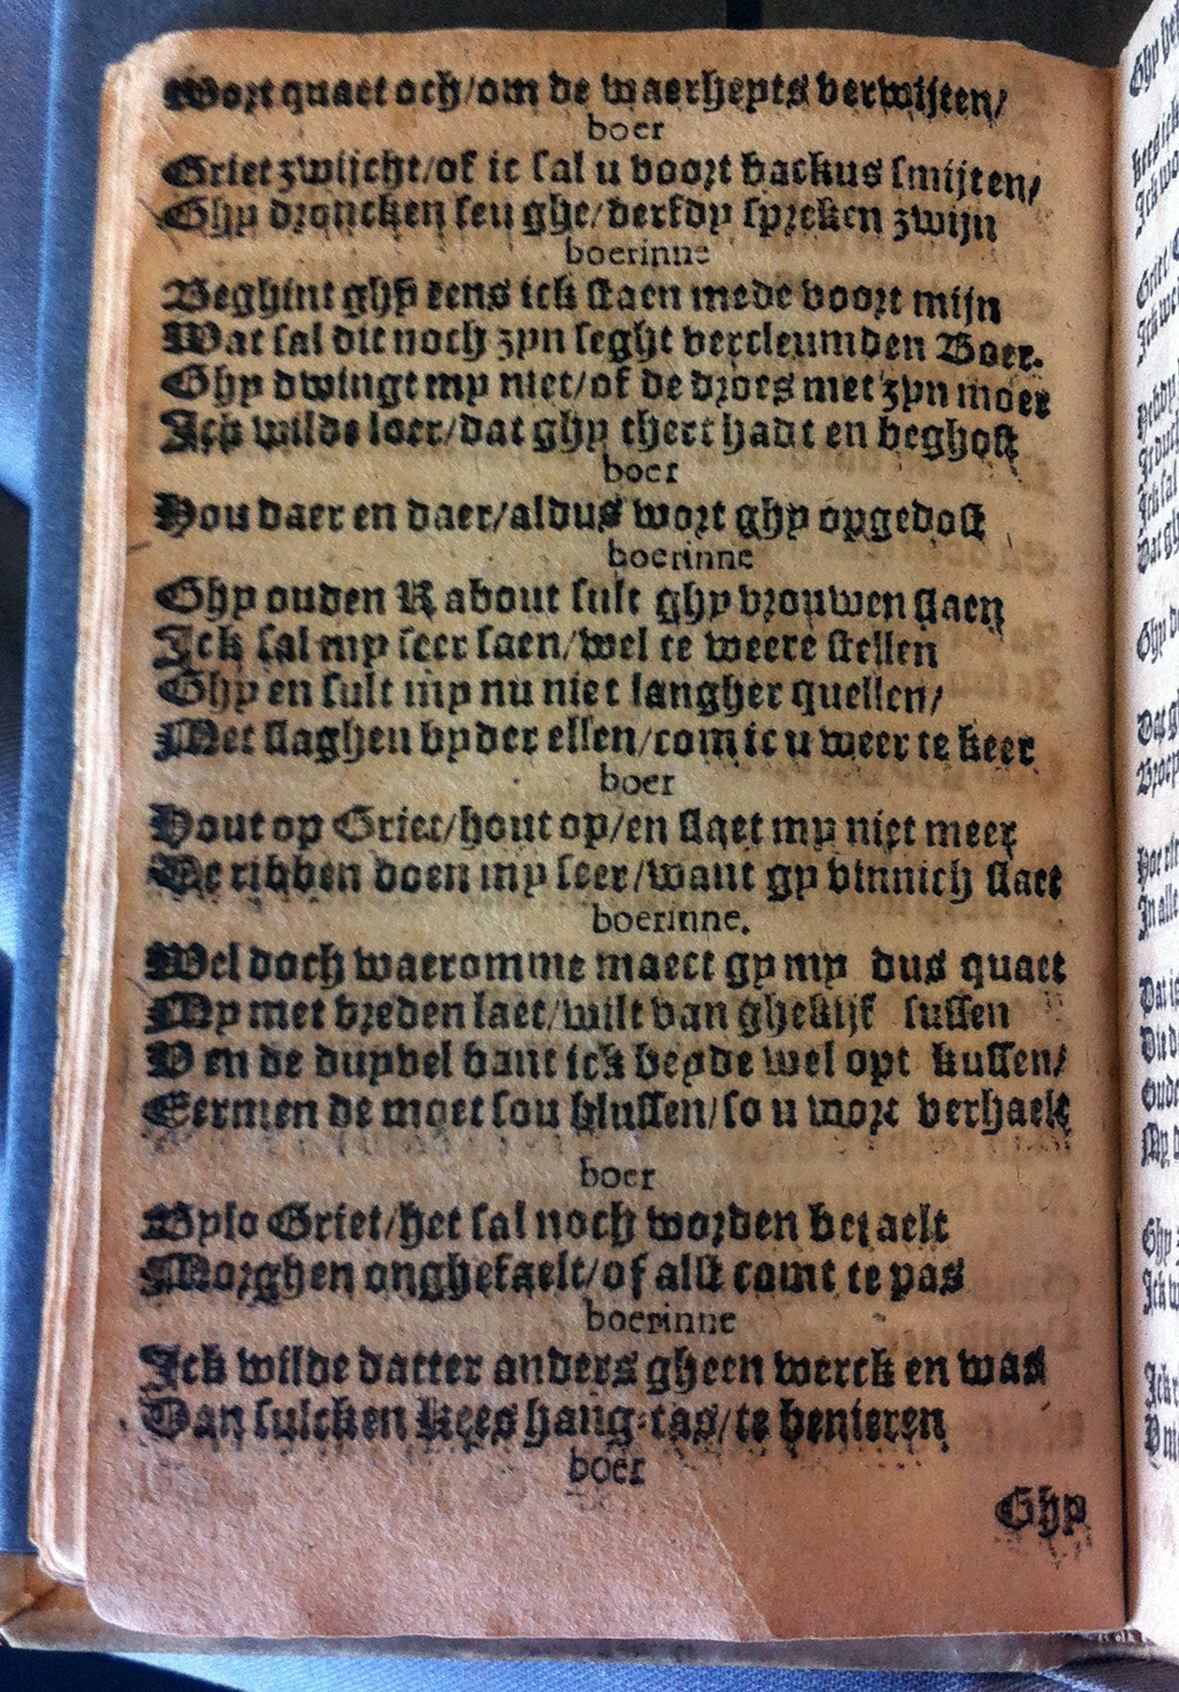 Wort quaet och/om de waerheyts verwijten/
boer
Griet zwijcht/of ic sal u voort backus smijten/
Ghy droncken seu ghe/derfdy spreken zwijn
boerinne
Beghint ghy eens ick staen mede voort mijn
Wat sal dit noch zyn seght vercleumden Boer.
Ghy dwingt my niet/of de droes met zyn moer
Ick wilde loer/dat ghy thert hadt en beghost
boer
Hou daer en daer/aldus wort ghy opgedost
boerinne
Ghy ouden Rabout sult ghy vrouwen slaen
Ick sal my seer saen/wel te weere stellen
Ghy en sult my nu niet langher quellen/
Met slaghen byder ellen/com ic u weer te keer
boer
Hout op Griet/hout op/en slaet my niet meer
De ribben doen my seer/want gy vinnich slaet
boerinne.
Wel doch waeromme maect gy my dus quaet
My met vreden laet/wilt van ghekijf sussen
V en de duyvel bant ick beyde wel opt kussen/
Eermen de moet sou blussen/so u wort verhaelt
boer
Bylo Griet/het sal noch worden betaelt
Morghen onghefaelt/of alst comt te pas
boerinne
Ick wilde datter anders gheen werck en was
Dan sulcken Kees hang-tas/te benieren
boer
Ghy